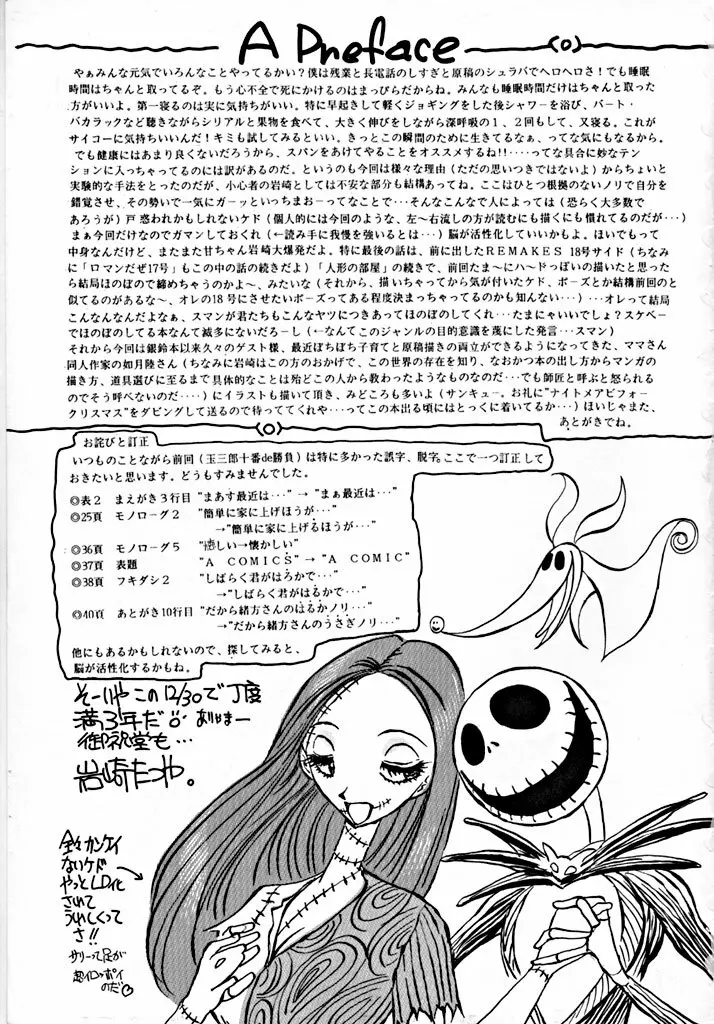 A Preface
やぁみんな元気でいろんなことやってるかい？僕は残業と長電話のしすぎと原稿のシュラバでヘロヘロさ！でも睡眠
時間はちゃんと取ってるぞ。もう心不全で死にかけるのはまっぴらだからね。みんなも睡眠時間だけはちゃんと取った
方がいいよ。第一寝るのは実に気持ちがいい。特に早起きして軽くジョギングをした後シャワーを浴び、バート・
バカラックなど聴きながらシリアルと果物を食べて、大きく伸びをしながら深呼吸の１、２回もして、又寝る。これが
サイコーに気持ちいいんだ！キミも試してみるといい。きっとこの瞬間のために生きてるなぁ、ってな気にもなるから。
でも健康にはあまり良くないだろうから、スパンをあけてやることをオススメするね!!‥‥ってな具合に妙なテン
ションに入っちゃってるのには訳があるのだ。というのも今回は様々な理由（ただの思いつきではないよ）からちょいと
実験的な手法をとったのだが、小心者の岩崎としては不安な部分も結構あってね。ここはひとつ根拠のないノリで自分を
錯覚させ、その勢いで一気にガーッといっちまおーってなことで‥‥そんなこんなで人によっては（恐らく大多数で
あろうが）戸惑われるかもしれないケド（個人的には今回のような、左〜右流しの方が読むにも描くにも慣れてるのだが‥‥）
まぁ今回だけなのでガマンしておくれ（←読み手に我慢を強いるとは‥‥）脳が活性化していいかもよ。ほいでもって
中身なんだけど、またまた甘ちゃん岩崎大爆発だよ。特に最後の話は、前に出したＲＥＭＡＫＥＳ 18号サイド（ちなみ
に「ロマンだぜ17号」もこの中の話の続きだよ）「人形の部屋」の続きで、前回たま〜にハ〜ドっぽいの描いたと思った
ら結局ほのぼので締めちゃうのかよ〜、みたいな（それから、描いちゃってから気が付いたケド、ポーズとか結構前回のと
似てるのがあるな〜、オレの18号にさせたいポーズってある程度決まっちゃってるのかも知んない‥‥）‥‥オレって結局
こんなんなんだよなぁ、スマンが君たちもこんなヤツにつきあってほのぼのしてくれ‥‥たまにゃいいでしょ？スケベー
でほのぼのしてる本なんて滅多にないだろーし（←なんてこのジャンルの目的意識を蔑にした発言‥‥スマン）
それから今回は銀鈴本以来久々のゲスト様、最近ぼちぼち子育てと原稿描きの両立ができるようになってきた、ママさん
同人作家の如月陸さん（ちなみに岩崎はこの方のおかげで、この世界の存在を知り、なおかつ本の出し方からマンガの
描き方、道具選びに至るまで具体的なことは殆どこの人から教わったようなものなのだ‥‥でも師匠と呼ぶと怒られる
のでそう呼べないのだ‥‥）にイラストも描いて頂き、みどころも多いよ（サンキュー。お礼に"ナイトメアビフォー
クリスマス"をダビングして送るので待っててくれや‥‥ってこの本出る頃にはとっくに着いてるか‥‥）ほいじゃまた、
あとがきでね。
お詫びと訂正
いつものことながら前回（玉三郎十番de勝負）は特に多かった誤字、脱字、ここで一つ訂正して
おきたいと思います。どうもすみませんでした。
◎表２　まえがき３行目 "まあす最近は‥‥" → "まぁ最近は‥‥"
◎25頁　モノローグ２　"簡単に家に上げほうが‥‥"
→"簡単に家に上げるほうが‥‥"
◎36頁　モノローグ５　"悽しい→懐かしい"
◎37頁　表題　"Ａ ＣＯＭＩＣＳ" → "Ａ ＣＯＭＩＣ"
◎38頁　フキダシ２　"しばらく君がはろかで‥‥"
→"しばらく君がはるかで‥‥"
◎40頁　あとがき10行目 "だから緒方さんのはるかノリ‥‥"
→"だから緒方さんのうさぎノリ‥‥"
他にもあるかもしれないので、探してみると、
脳が活性化するかもね。
そーいや この12/30で丁度
満3年だ ありゃまー
御祝堂も…
岩崎たつや。
全々カンケイ
ないケド
やっとLD化
されて
うれしくって
さ!!
サリーって足が
超イロッポイ
のだ♡